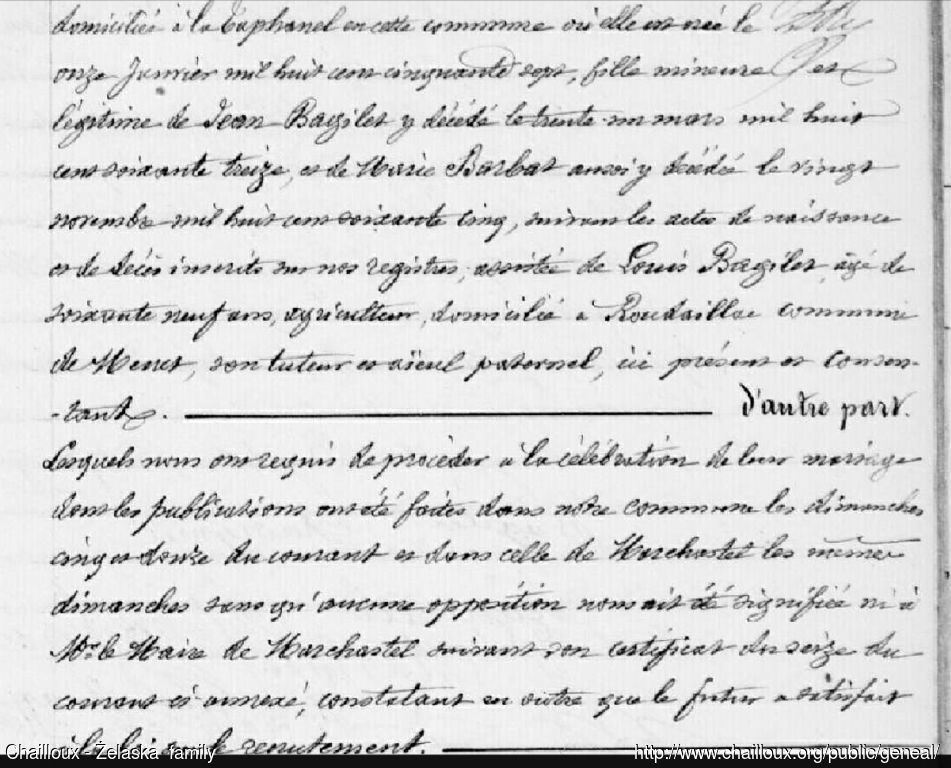 domiciliée à la Taphanel en cette commune où elle est née le
onze Janvier mil huit cent cinquante sept, fille mineure et
légitime de Jean Bagilet y décédé le trente un mars mil huit
cent soixante treize, et de Marie Barbat aussi y décédée le vingt
novembre mil huit cent soixante cinq, suivant les actes de naissance
et de décès inscrits sur nos registres, assistée de Louis Bagilet, âgé de
soixante neuf ans, agriculteur, domicilié à Roudaillac commune
de Menet, son tuteur et aïeul paternel, ici présent et consen-
-tant. d'autre part.
Lesquels nous ont requis de procéder à la célébration de leur mariage
dont les publications ont été faites dans notre commune les dimanches
cinq et douze du courant et dans celle de Marchastel les mêmes
dimanches sans qu'aucune opposition nous ait été signifiée ni à
Mr le Maire de Marchastel suivant son certificat du seize du
courant ci annexé, constatant en outre que le futur a satisfait
à la loi sur le recrutement.
Chailloux - Żelaska family http://www.chailloux.org/public/geneal/